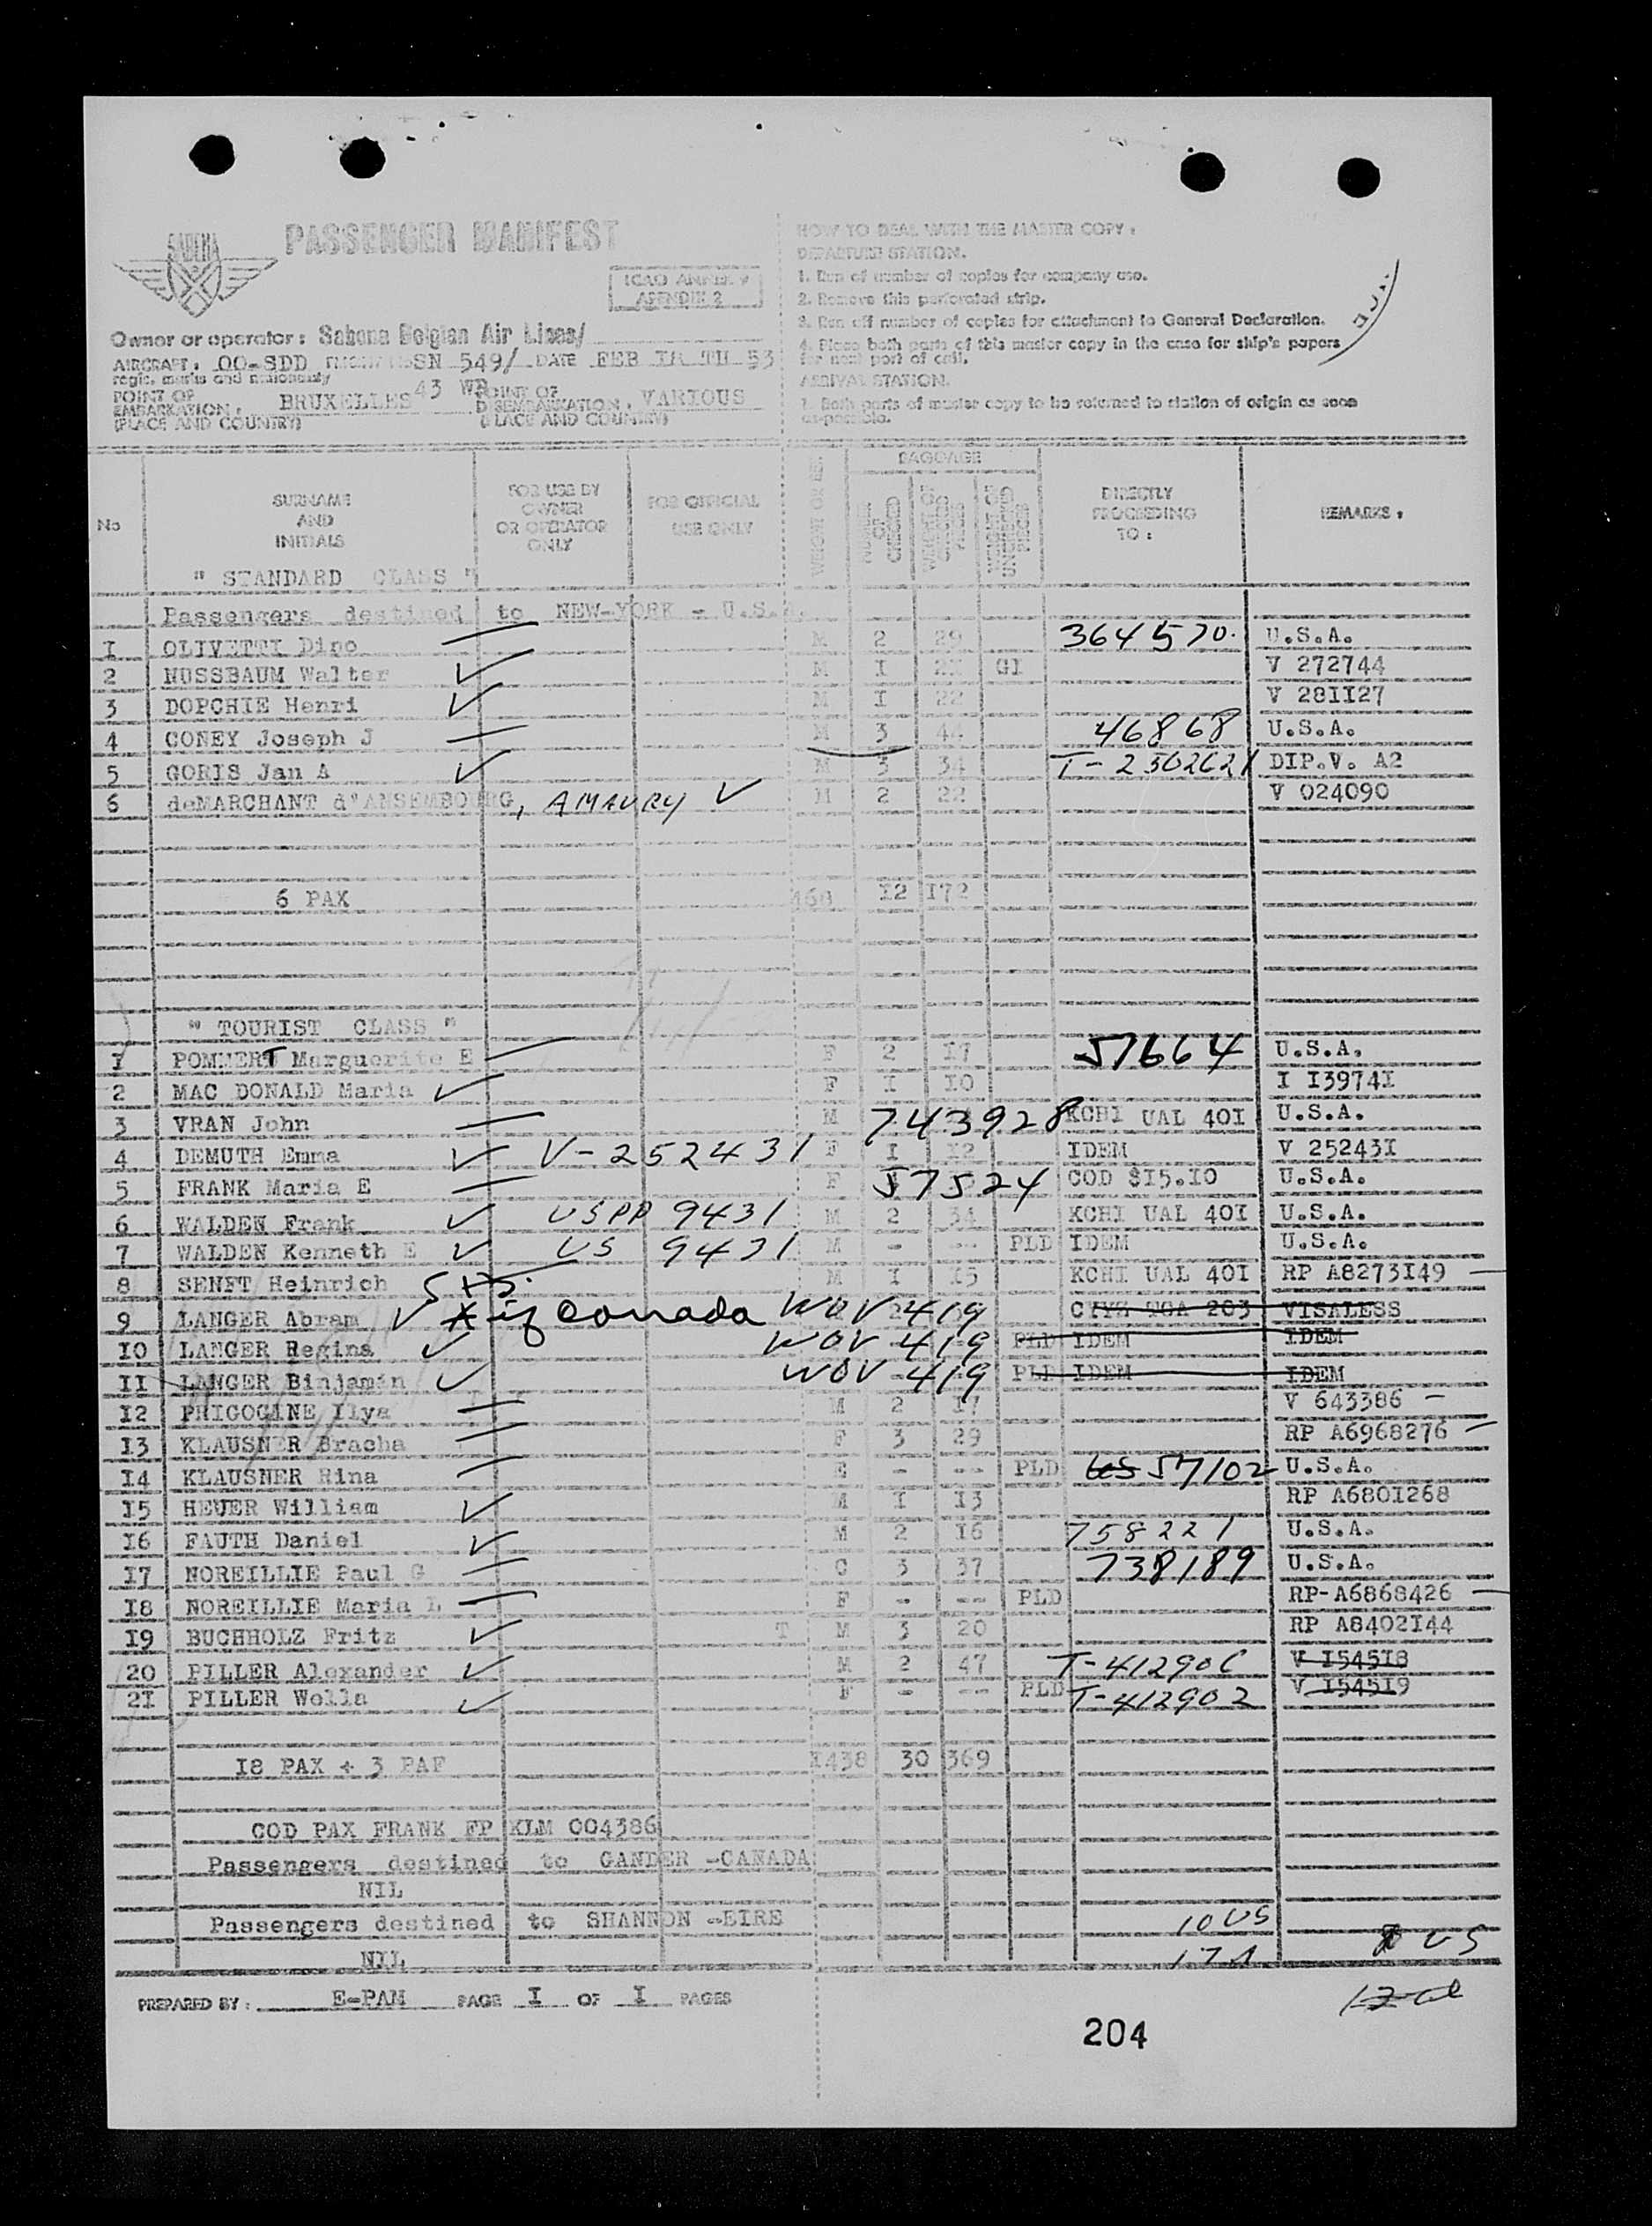 SABENA
PASSENGER MANIFEST
ICAO ANNEX 9
APENDIX 2
Owner or operator : Sabena Belgian Air Lines/
AIRCRAFT : OO-SDD SN 549/ DATE FEB TH 53
regis. marks and nationality
43
POINT OF EMBARKATION : BRUXELLES
(PLACE AND COUNTRY)
POINT OF DISEMBARKATION : VARIOUS
(PLACE AND COUNTRY)
HOW TO DEAL WITH THE MASTER COPY :
DEPARTURE STATION.
1. Run of number of copies for company use.
2. Remove this perforated strip.
3. Run off number of copies for attachment to General Declaration.
4. Place both parts of this master copy in the case for ship's papers
for next port of call.
ARRIVAL STATION.
1. Both parts of master copy to be returned to station of origin as soon
as possible.
No
SURNAME AND INITIALS
FOR USE BY OWNER OR OPERATOR ONLY
FOR OFFICIAL USE ONLY
BAGGAGE
NUMBER OF CHECKED
DIRECTLY PROCEEDING TO :
REMARKS :
" STANDARD CLASS "
Passengers destined to NEW-YORK - U.S.A.
I OLIVETTI Dino M 2 29 364570. U.S.A.
2 NUSSBAUM Walter M I 2I GI V 272744
3 DOPCHIE Henri M I 22 V 28II27
4 CONEY Joseph J M 3 44 46868 U.S.A.
5 GORIS Jan A M 3 34 T-2362621 DIP.V. A2
6 deMARCHANT d'ANSEMBOURG, AMAURY M 2 22 V 024090
6 PAX 468 I2 I72
" TOURIST CLASS "
I POMMERT Marguerite E F 2 I7 57664 U.S.A.
2 MAC DONALD Maria F I IO I I3974I
3 VRAN John M 743928 KCHI UAL 40I U.S.A.
4 DEMUTH Emma V-252431 F I I2 IDEM V 25243I
5 FRANK Maria E F 57524 COD $I5.IO U.S.A.
6 WALDEN Frank USPP 9431 M 2 34 KCHI UAL 40I U.S.A.
7 WALDEN Kenneth E US 9431 M - -- PLD IDEM U.S.A.
8 SENFT Heinrich M I I5 KCHI UAL 40I RP A8273I49
9 LANGER Abram Canada WOV 419 203 VISALESS
IO LANGER Regina WOV 419 PLD IDEM IDEM
II LANGER Binjamin WOV 419 PLD IDEM IDEM
I2 PRIGOGINE Ilya M 2 I7 V 643386
I3 KLAUSNER Bracha F 3 29 RP A6968276
I4 KLAUSNER Rina F - -- PLD US 57102 U.S.A.
I5 HEUER William M I I3 RP A680I268
I6 FAUTH Daniel M 2 I6 758221 U.S.A.
I7 NOREILLIE Paul G C 3 37 738189 U.S.A.
I8 NOREILLIE Maria L F - -- PLD RP-A6868426
I9 BUCHHOLZ Fritz T M 3 20 RP A8402I44
20 PILLER Alexander M 2 47 T-412906 V I545I8
2I PILLER Wolla F - -- PLD T-412902 V I545I9
I8 PAX + 3 PAF I438 30 369
COD PAX FRANK FP KLM 004386
Passengers destined to GANDER -CANADA
NIL
Passengers destined to SHANNON -EIRE
NIL
10 US
17 A
US
PREPARED BY : E-PAM PAGE I OF I PAGES
204